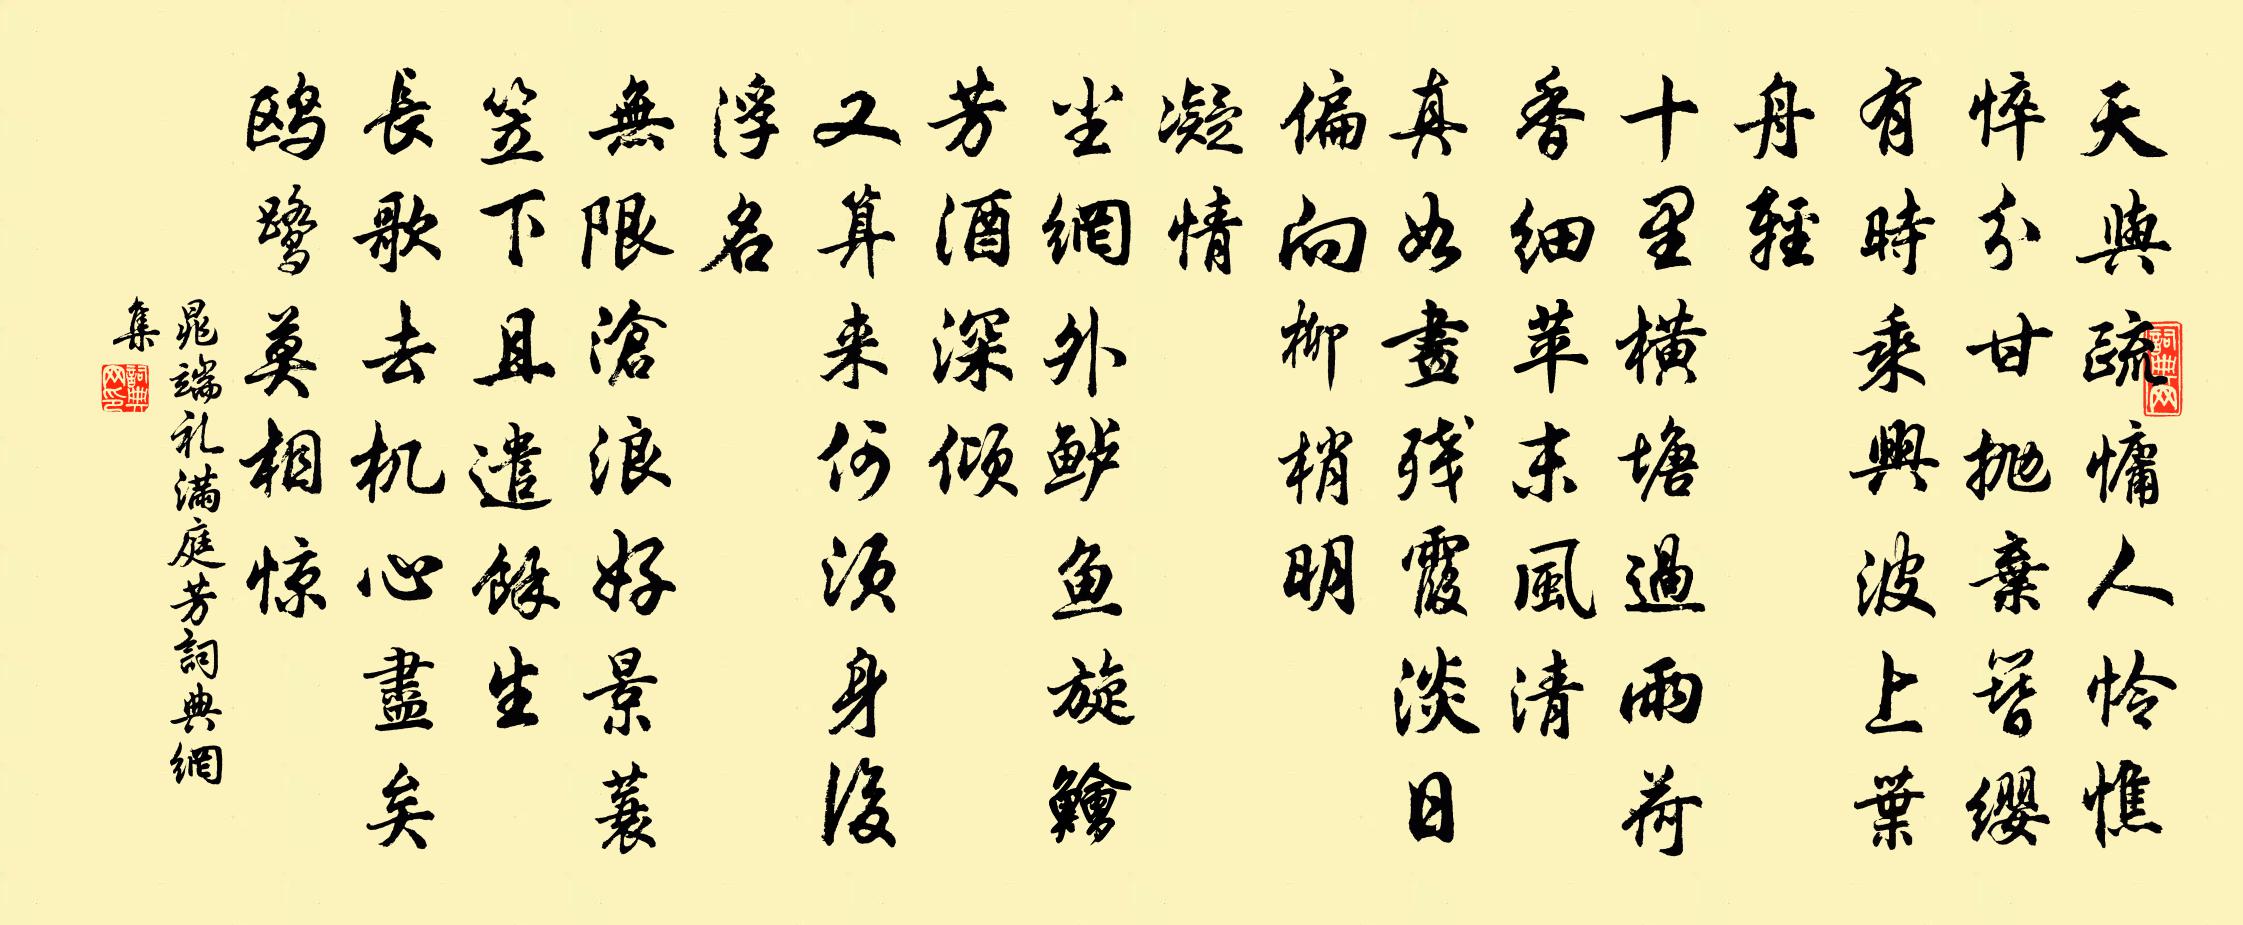 天與疏慵人怜憔
悴分甘抛棄簪缨
有時乘興波上葉
舟輕
十里橫塘過雨荷
香细苹末風清
真如畫残霞淡日
偏向柳梢明
凝情
尘網外鲈鱼旋鱠
芳酒深倾
又算来何须身後
浮名
無限滄浪好景蓑
笠下且遣餘生
長歌去机心盡矣
鸥鹭莫相惊
晁端礼满庭芳詞典網
集
詞典网
詞典网印